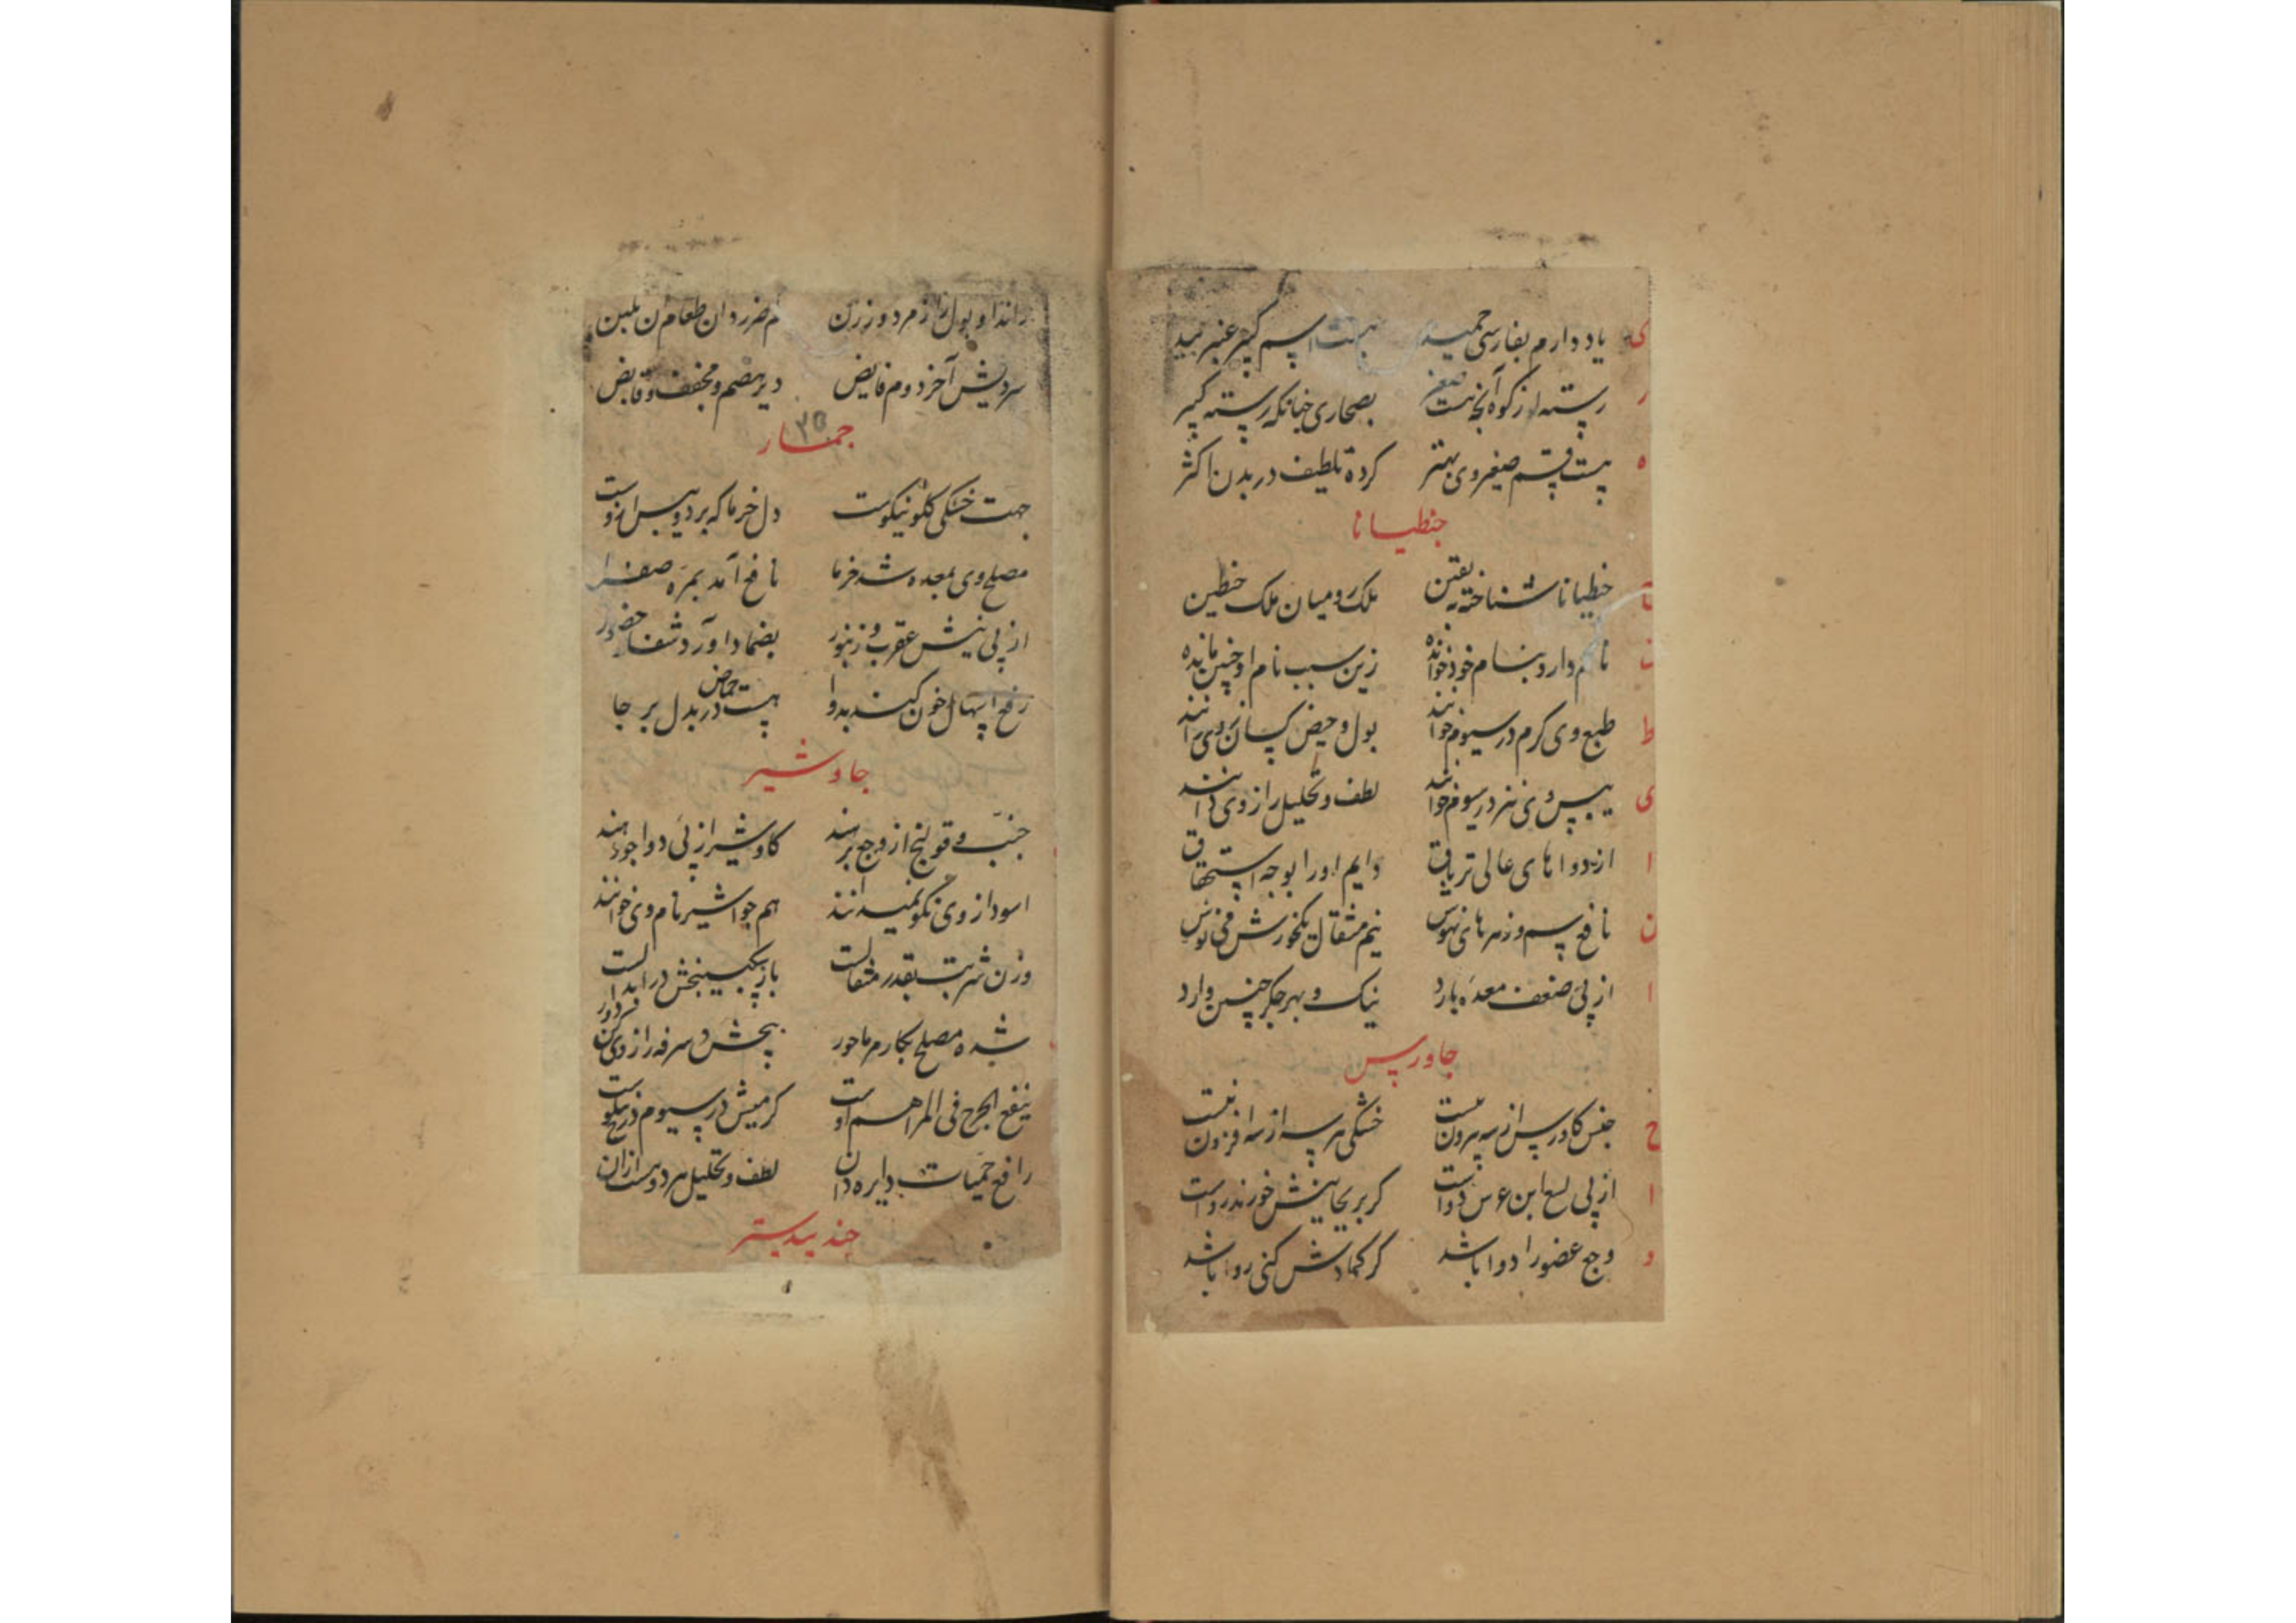 ی یاد دارم بفارسی حمید هست اسم کبیر عنبر بید
ر رسته از کوه آنچه هست صغیر بصحاری چنانکه رسته کبیر
ه هست قسم صغیر وی بهتر کرده تلطیف در بدن اکثر
جنطیانا
جنطیانا شناخته بیقین ملک رومیان ملک جنطین
نام دارو بنام خود خوانده زین سبب نام او چنین مانده
ط طبع وی گرم در سیوم خوانند بول و حیض کسان ز وی رانند
ی یبس وی نیز در سیوم خوانند لطف و تحلیل را ز وی دانند
ا از دواهای عالی تریاق دایم او را بوجه استحقاق
ن نافع سم و زهرهای نهوس نیم مثقال
ا از پی ضعف معده بارد نیک و بهر جگر چنین وارد
جاورس
ح جنس کاورس از سه بیرون نیست خشکی هر سه از سه افزون نیست
ا از پی لسع ابن عرس دواست گر بر نجا خورند رواست
و وجع عضو را دوا باشد گر کمادش کنی روا باشد
راند او بول را ز مرد و ز زن هم ضرر دان طعام
سردیش آخر دوم فایض دیر هضم و مجفف و قابض
۳۵
جمار
جهت خشکی گلو نیکوست دل خرما که برد و یبس در اوست
مصلح وی بمعده شد خرما نافع آمد بمره صفرا
از پی نیش عقرب و زنبور بضماد آورد شفا حضور
رفع اسهال خون کند بدوا هست حماض در بدل بر جا
جاوشیر
جنب و قولنج ازو وجع برهند کاوشیر از پی دوا جو دهند
اسود از وی نکو نمیدانند هم جواشیر نام وی خوانند
وزن شربت بقدر مثقالست باز سکبینجش در ابدالست
شده مصلح بکار مر ماحور پیچش و سرفه را ز وی کن دور
ینفع الجرح فی المراهم اوست گرمیش در سیوم درج نیکوست
رافع حمیات دایره دان لطف و تحلیل هر دو هست ازان
جندبیدستر